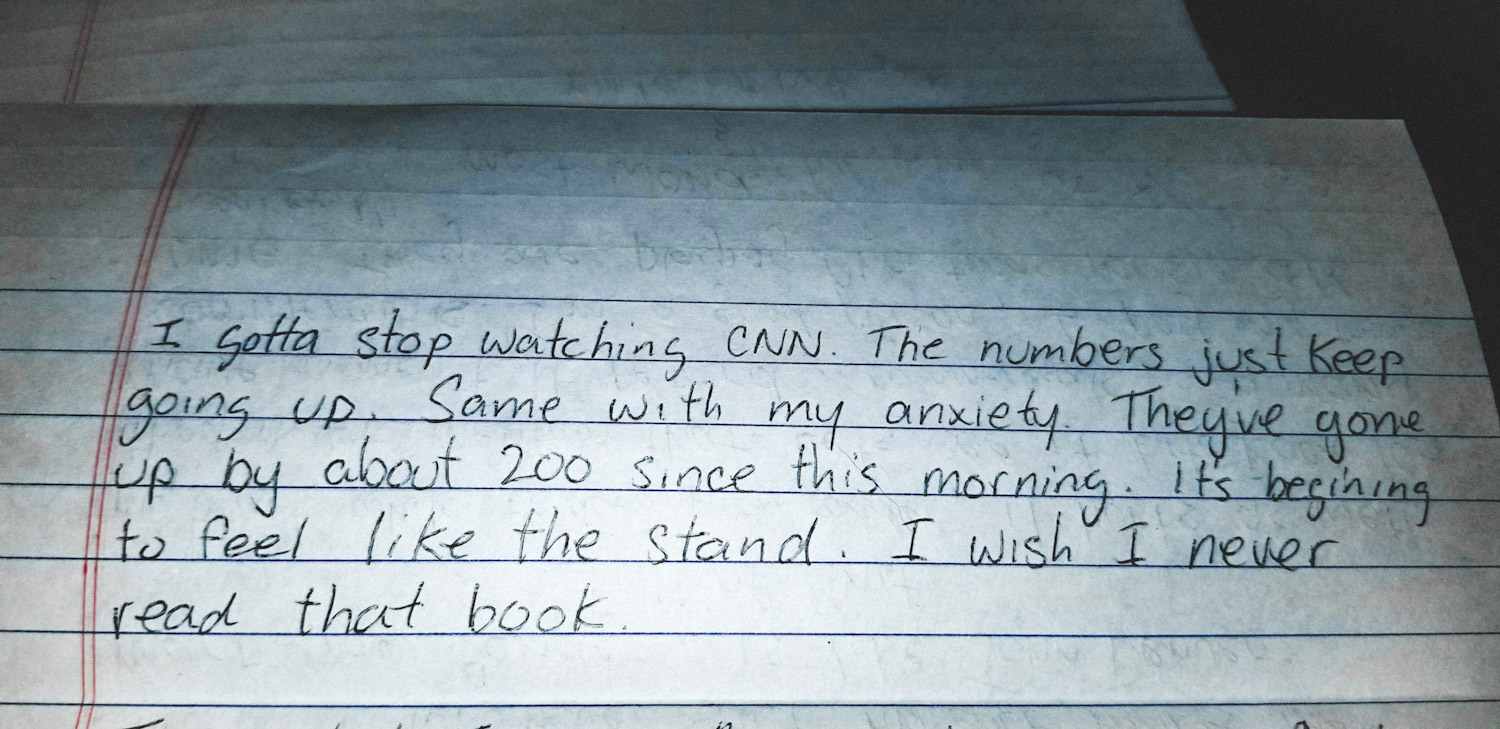 I gotta stop watching CNN. The numbers just keep
going up. Same with my anxiety. They've gone
up by about 200 since this morning. It's begining
to feel like the stand. I wish I never
read that book.